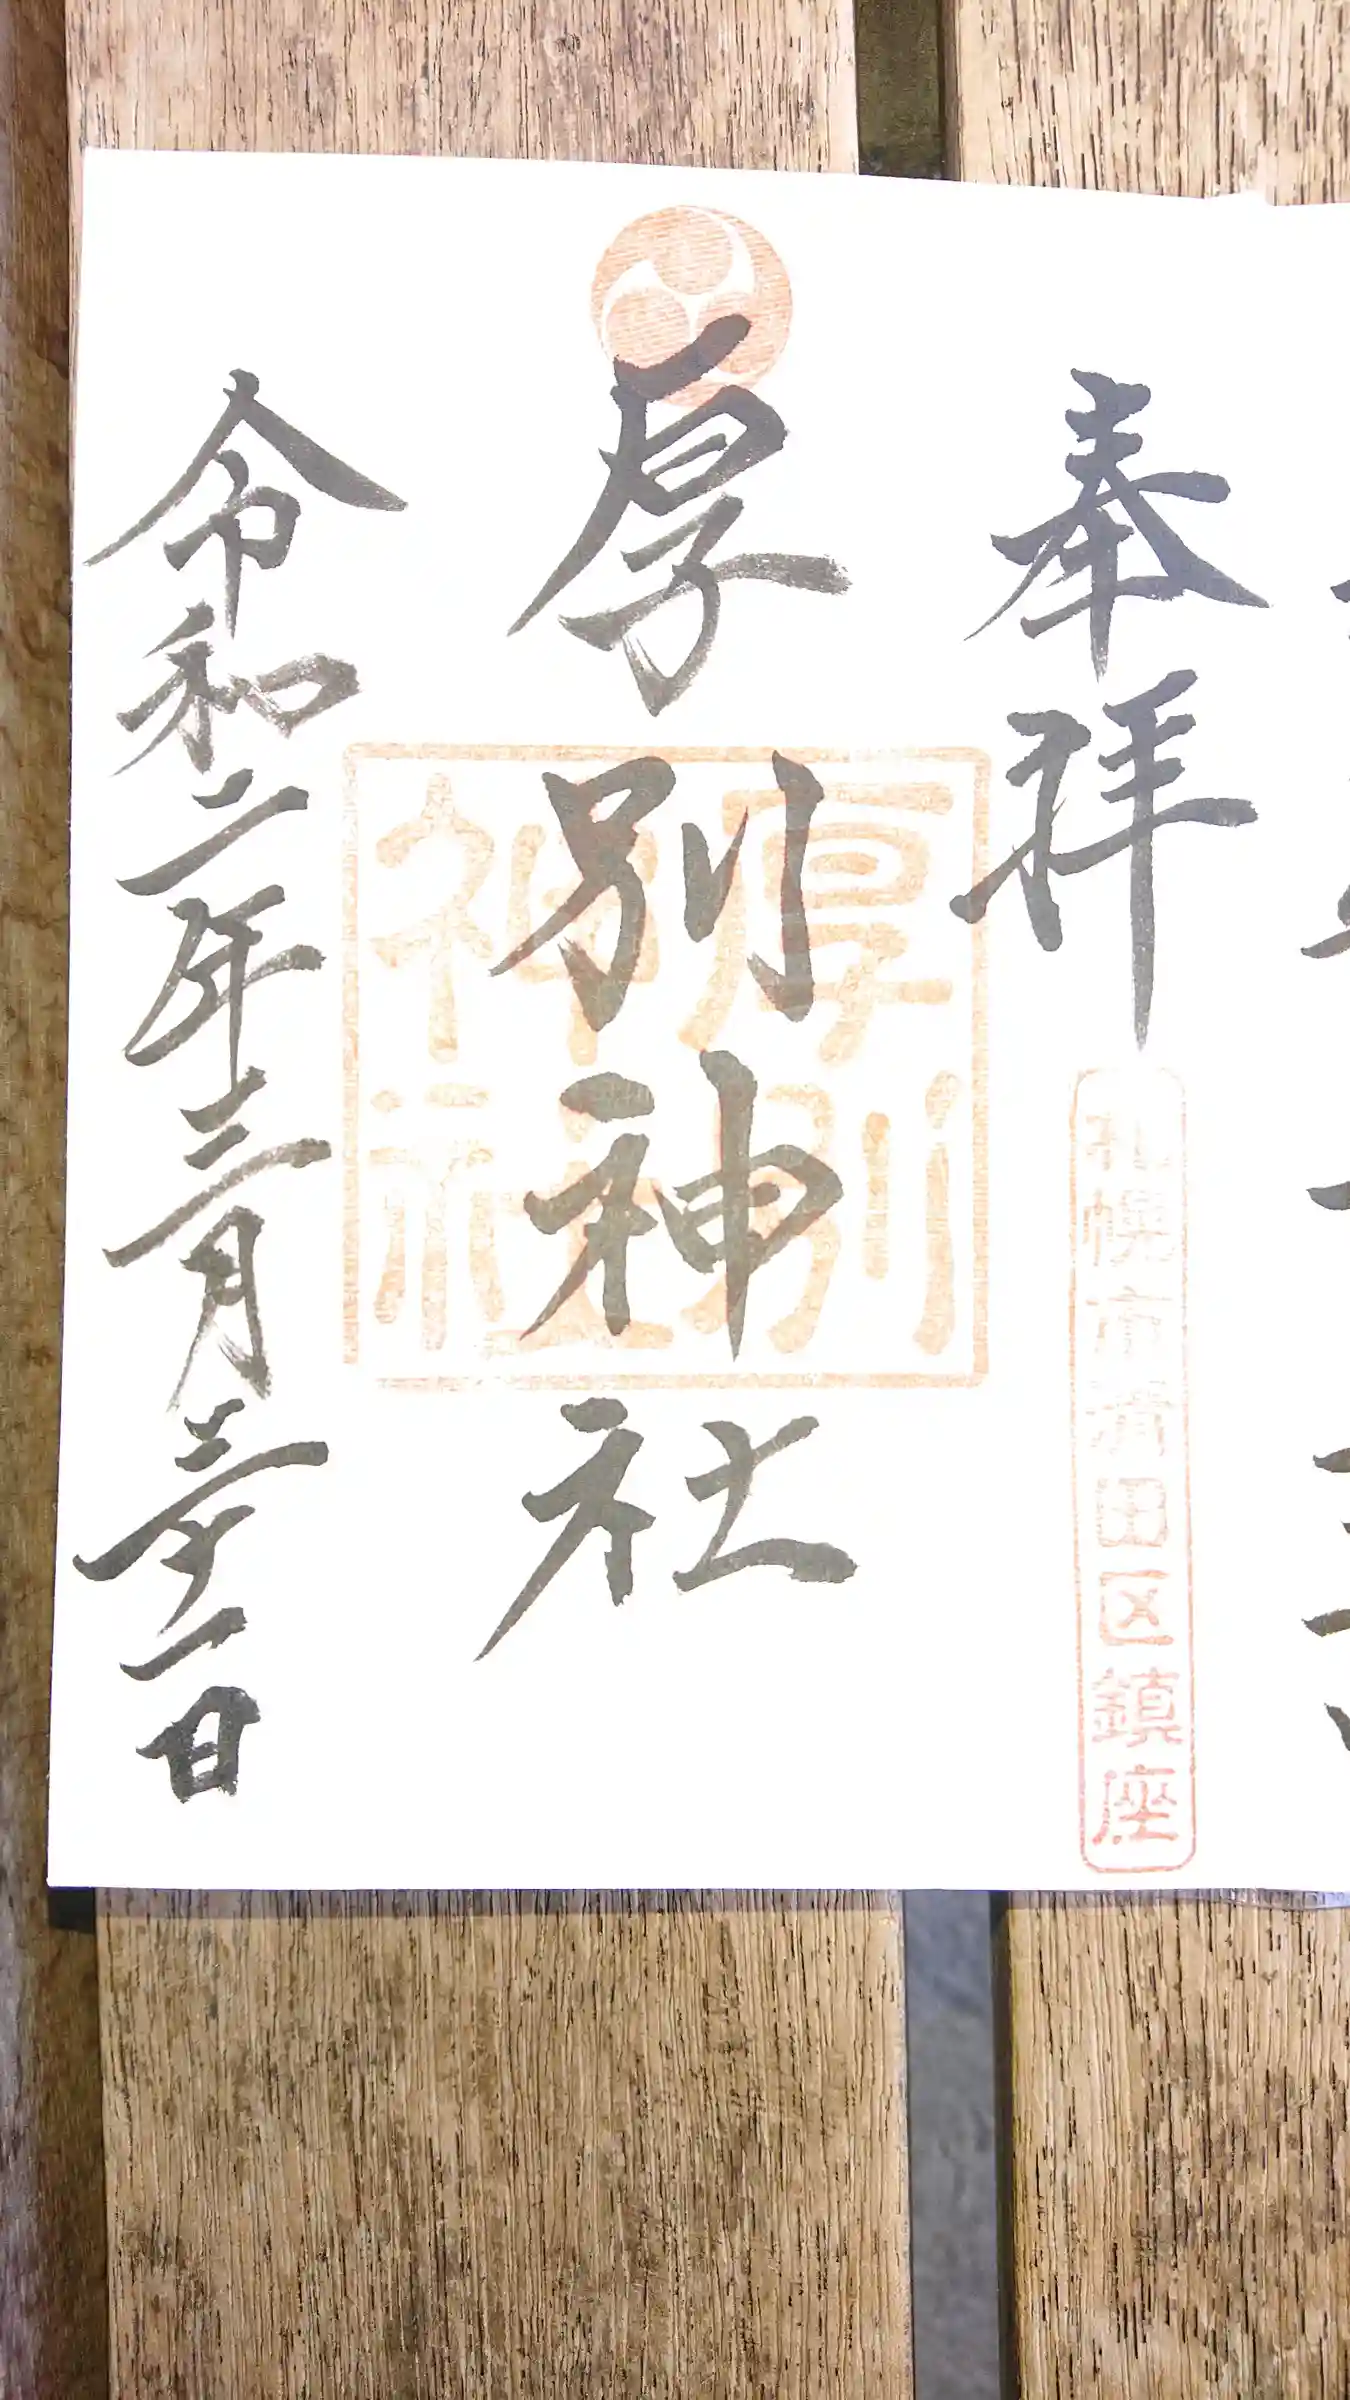 奉拝
札幌市清田区鎮座
厚別神社
厚別
神社
令和二年三月三十一日